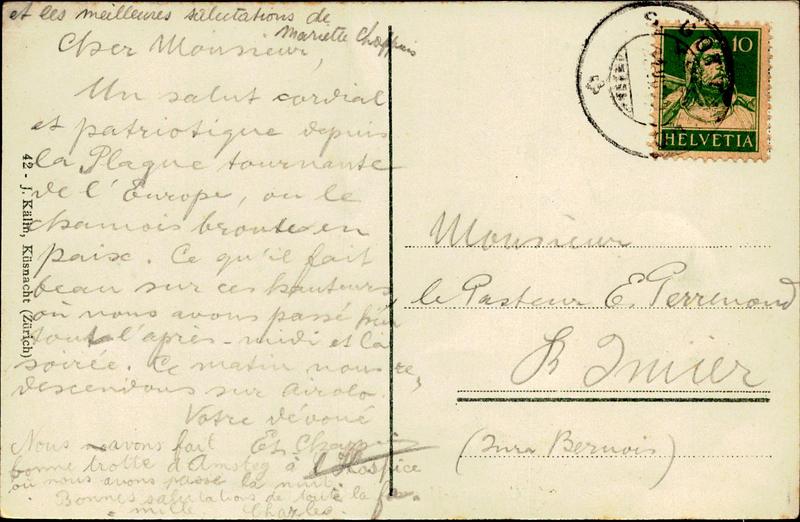 et les meilleures salutations de
Mariette Chappuis
Cher Monsieur,
Un salut cordial
et patriotique depuis
la Plaque tournante
de l'Europe, ou le
chamois broute en
paix. Ce qu'il fait
beau sur ces hauteurs
où nous avons passé hier
tout l'après-midi et la
soirée. Ce matin nous re,
descendons sur Airolo.
Votre dévoué
Et. Chappuis
Nous avons fait
bonne trotte d'Amsteg à l'Hospice
où nous avons passé la nuit.
Bonnes salutations de toute la fa-
mille. Charles.
42 - J. Kälin, Küsnacht (Zürich)
10
HELVETIA
Monsieur
le Pasteur E. Perrenoud
St Imier
(Jura Bernois)